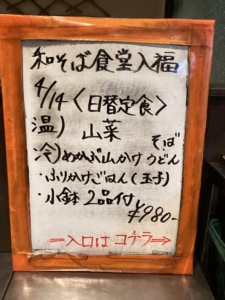 和そば食堂入福
4/14〈日替定食〉
温）山菜 そば
冷）めかぶ山かけ うどん
・ふりかけごはん（玉子）
・小鉢2品付
¥980-
⇒入口は コチラ→